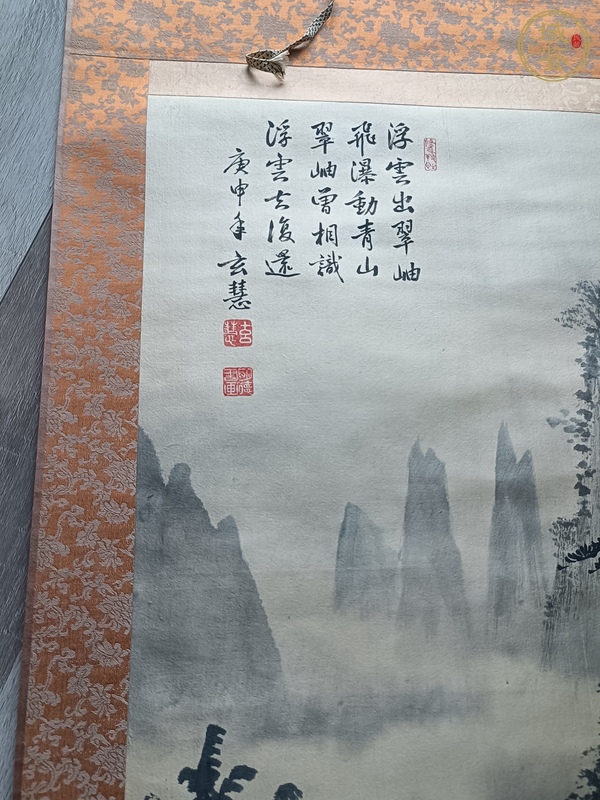 浮雲出翠岫
飛瀑動青山
翠岫曾相識
浮雲去復還
庚申年玄慧
玄慧